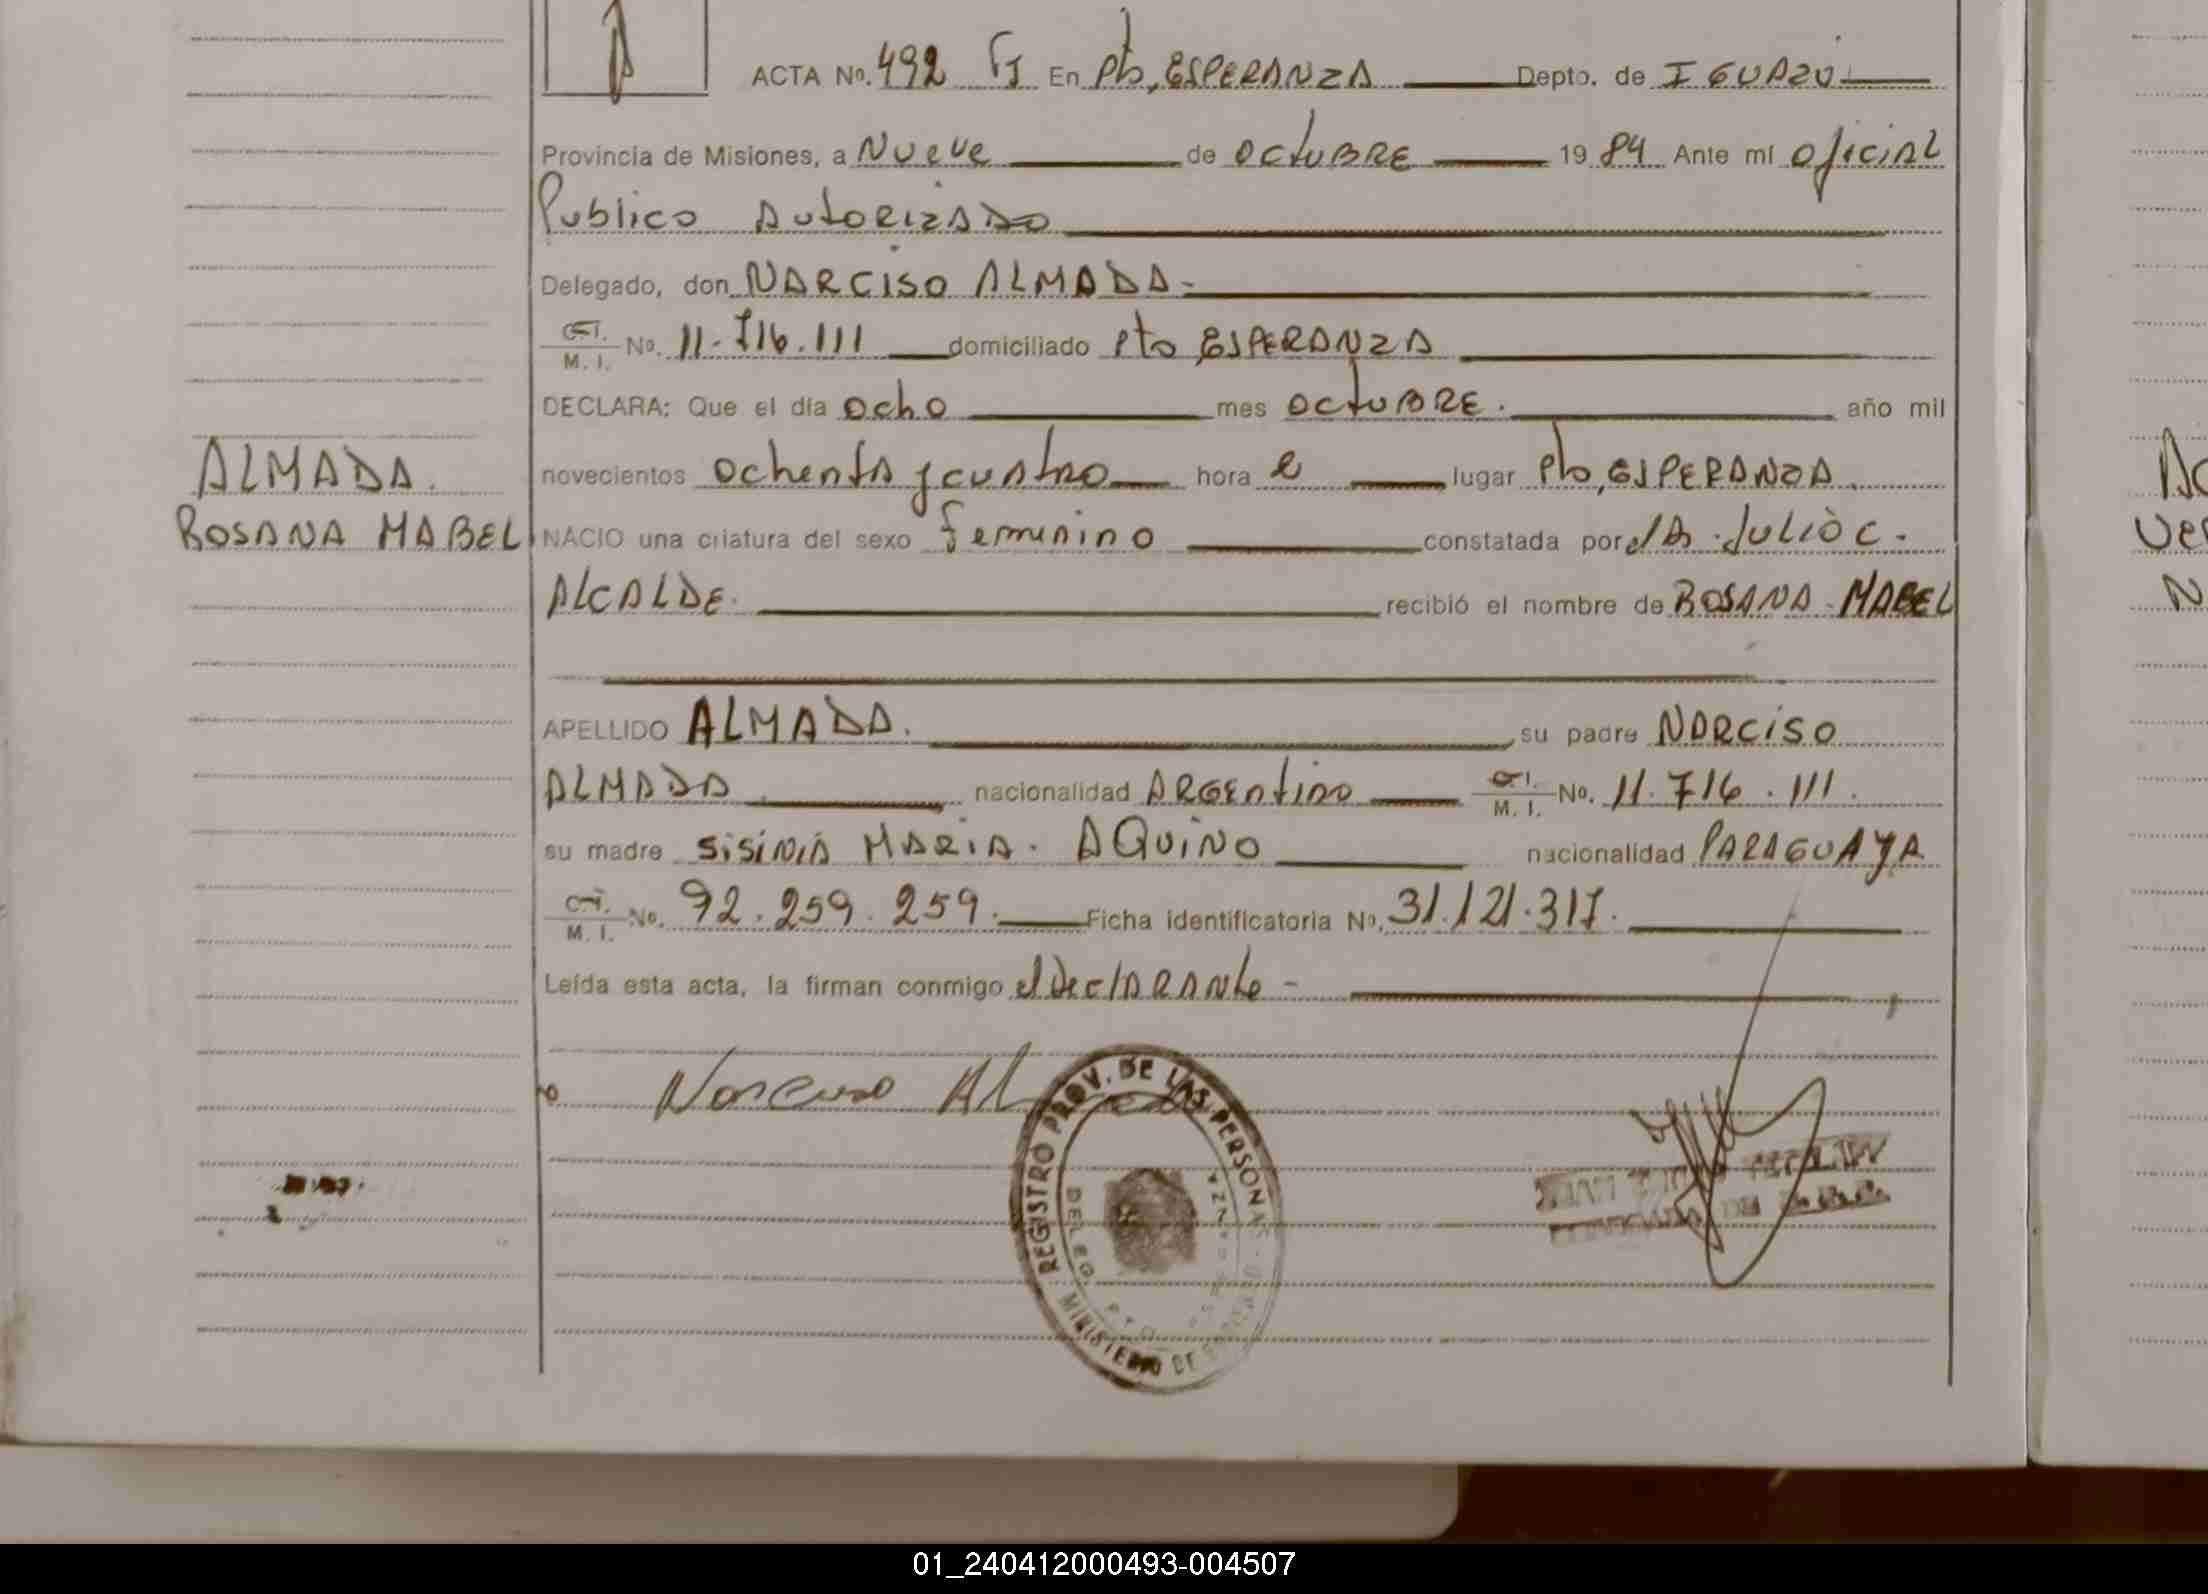 ACTA Nº. 492 FJ En Pto, ESPERANZA Depto. de IGUAZÚ
Provincia de Misiones, a Nueve de OCTUBRE 19 84 Ante mí OficiAL
Publico Autorizado
Delegado, don NARCISO ALMADA.
C.I. M. I. Nº. 11.716.111 domiciliado Pto ESPERANZA
DECLARA: Que el día ocho mes OCTUBRE. año mil
novecientos ochenta y cuatro hora 2 lugar Pto, ESPERANZA.
ALMADA.
ROSANA MABEL
NACIO una criatura del sexo femenino constatada por el DR. JULIO C.
ALCALDE. recibió el nombre de ROSANA MABEL
APELLIDO ALMADA. su padre NARCISO
ALMADA nacionalidad ARGENTINO C.I. M. I. Nº. 11.716.111.
su madre SISINIA MARIA. AQUINO nacionalidad PARAGUAYA
C.I. M. I. Nº. 92.259.259. Ficha identificatoria Nº. 31.121.317.
Leída esta acta, la firman conmigo el DeclARANte -
Narciso Al
REGISTRO PROV. DE LAS PERSONAS
MINISTERIO DE
DELEG. PTO.
01_240412000493-004507